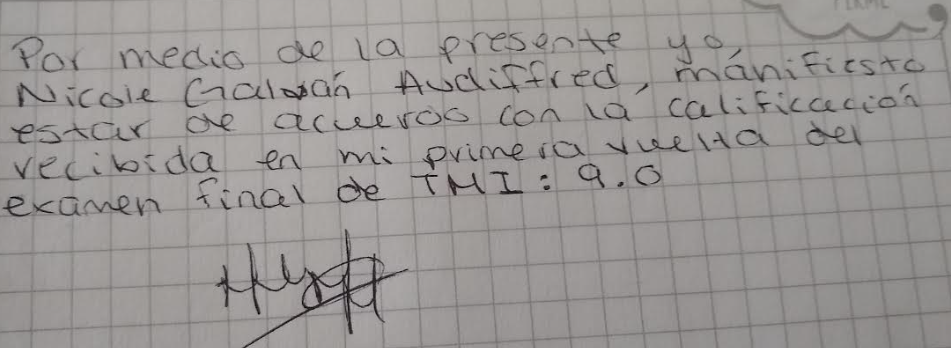 Por medio de la presente yo,
Nicole Galván Audiffred, manifiesto
estar de acuerdo con la calificación
recibida en mi primera vuelta del
examen final de TMI: 9.0